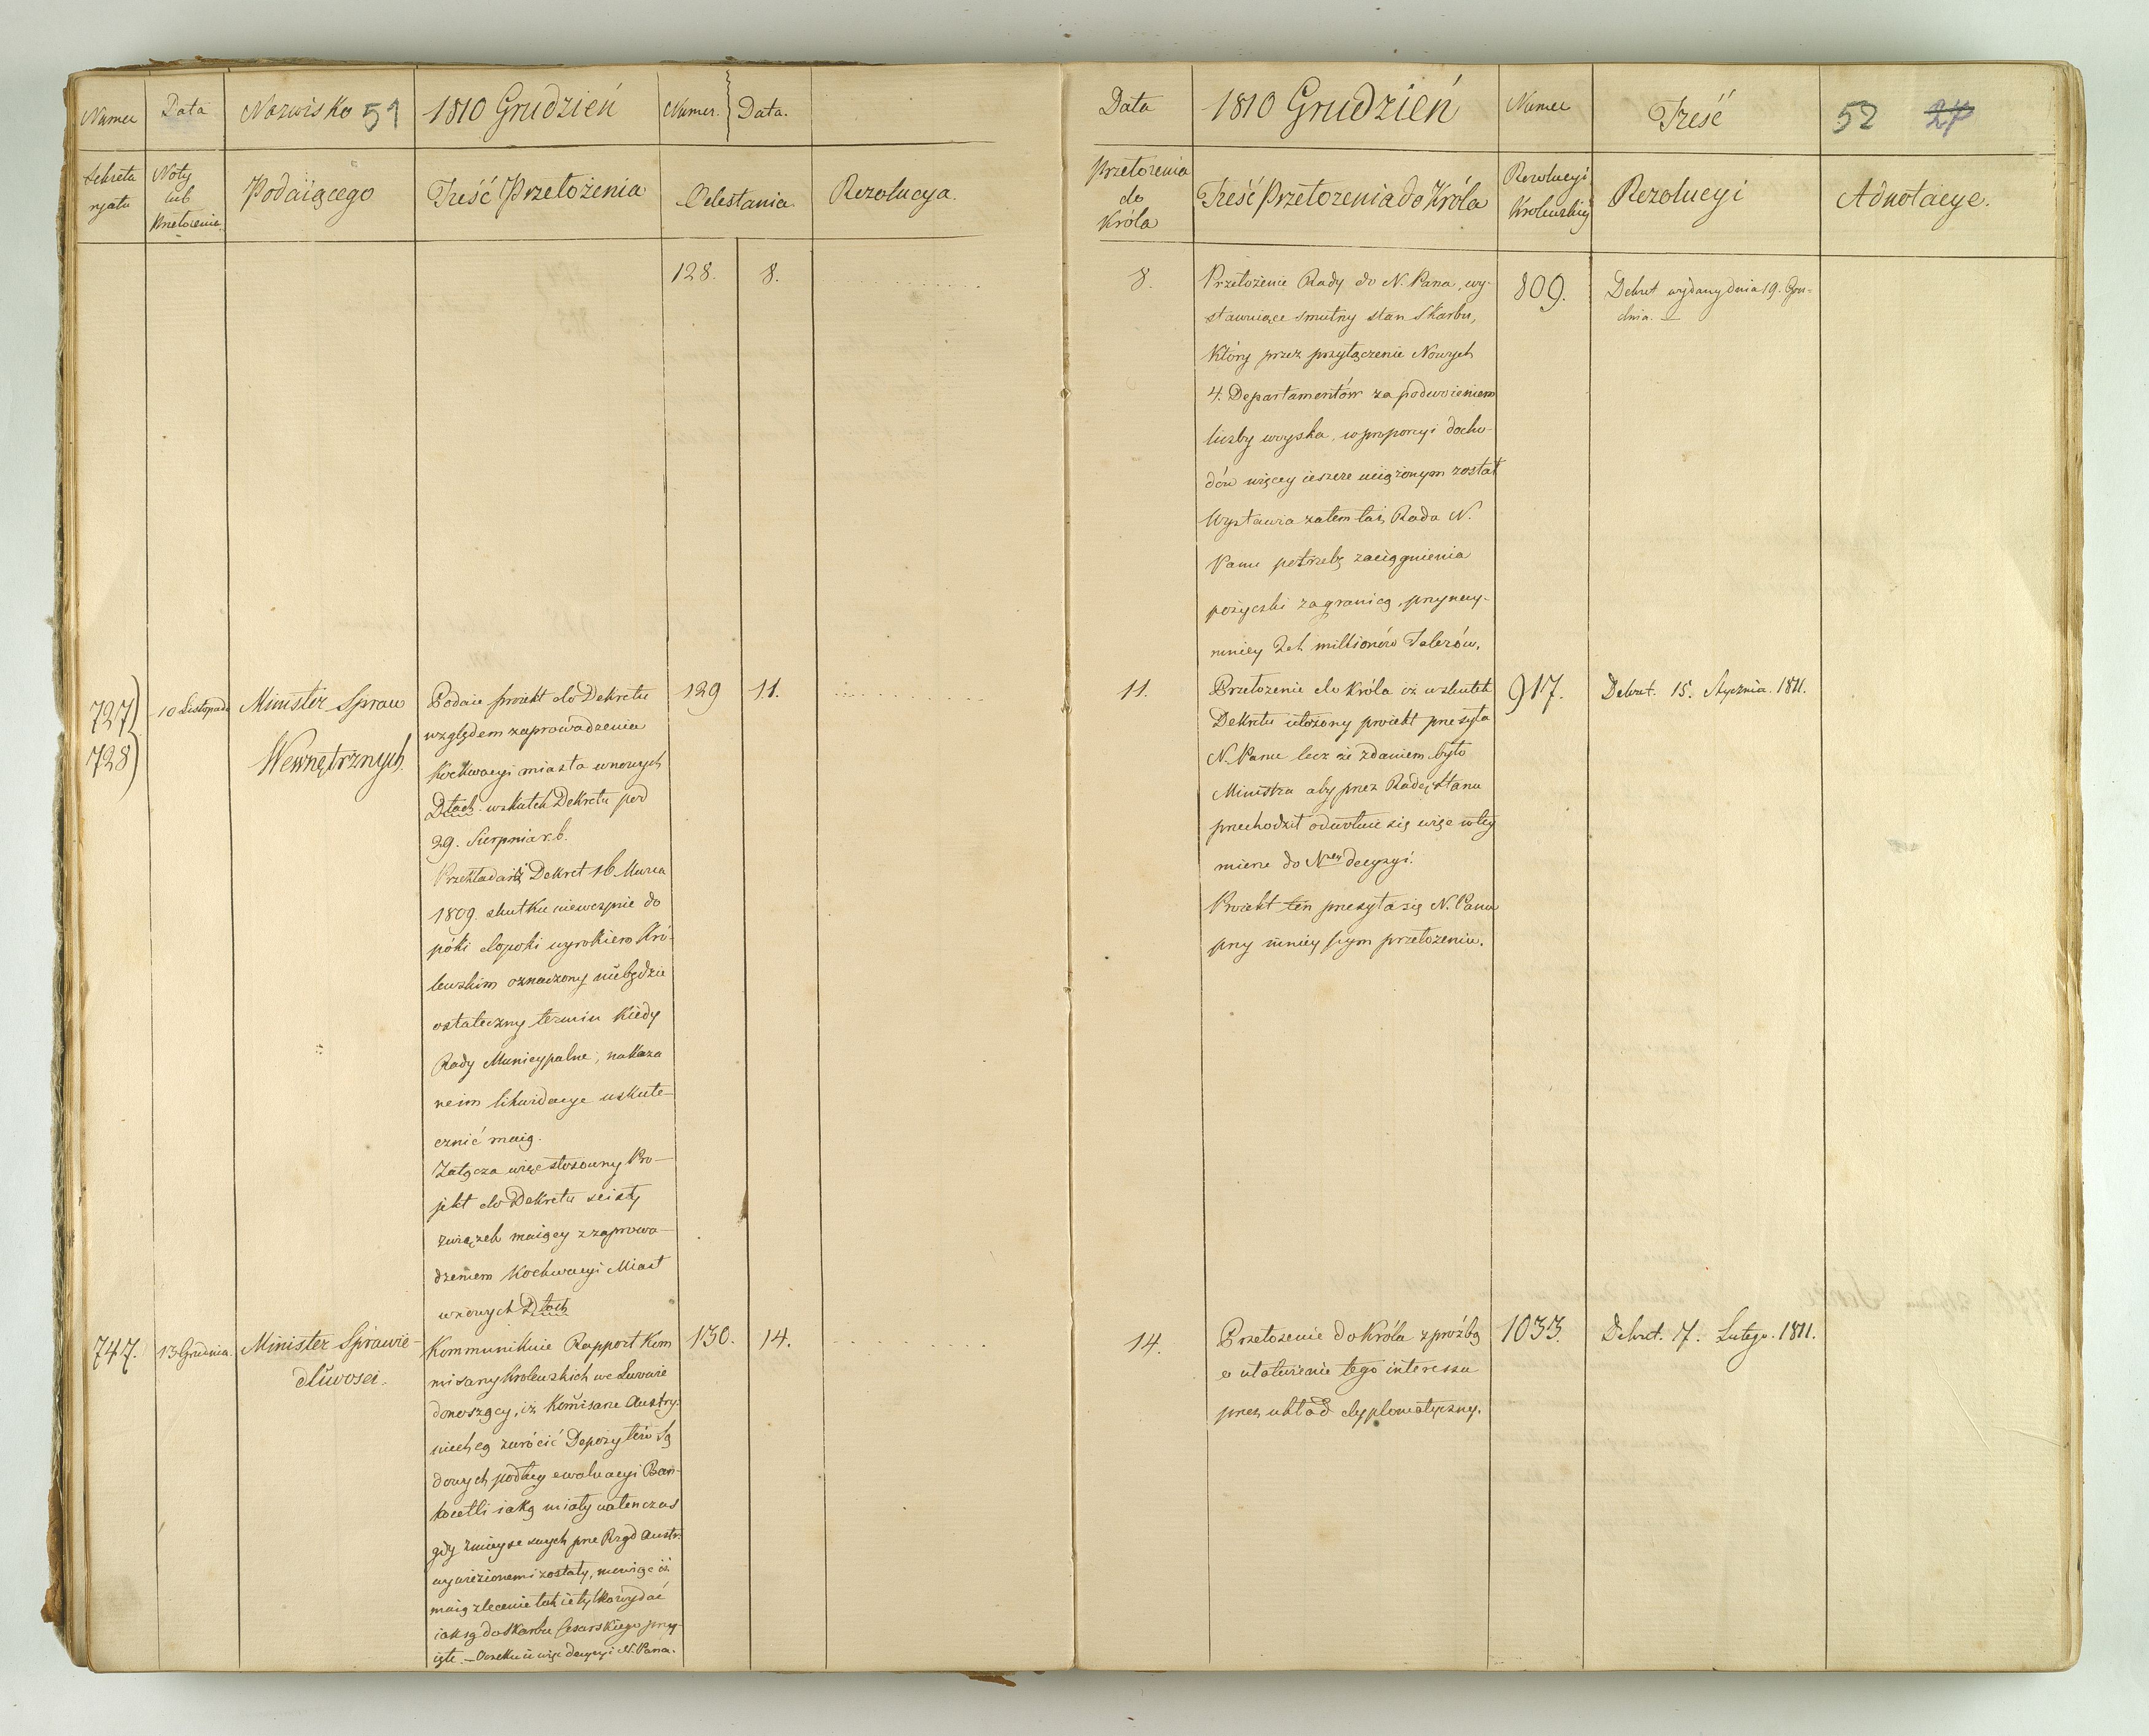 Numer Data Nazwisko 51 1810 Grudzień Numer. Data.
Sekreta
ryatu
Noty
lub
Przełożenia
Podaiącego
Treść Przełożenia
Odesłania
Rezolucya.
128. 8.
727)
728)
10 Listopada
Minister Spraw
Wewnętrznych.
Podaie proiekt do Dekretu
względem zaprowadzenia
miasta wnowych
Dtach. wskutek Dekretu pod
29. Sierpnia r. b.
Przekłada iż Dekret 16 Marca
1809. skutku niewezmie do
póki dopoki wyrokiem Kró-
lewskim oznaczony niebędzie
ostateczny termin kiedy
Rady Municypalne, nakaza
ne im likwidacye uskute-
cznić maią.
Załącza więc stosowny Pro-
jekt do Dekretu scisły
związek maiący z zaprowa-
dzeniem Miast
wnowych Dtach
129 11.
747.
13 Grudnia.
Minister Sprawie-
dliwosci.
Kommunikuie Rapport Kom
misarzy Krolewskich we Lwowie
donoszący, iż Komisarze Austry.
niechcą zwrócić Depozytów Są
dowych podług ewaluacyi Ban-
kocetli iaką miały natenczas
gdy z mieysc swych prze Rząd Austr.
wywiezionemi zostały, mówiąc iż
maią zlecenie tak ie tylko wydać
iak są do Skarbu Cesarskiego przy-
ięte. — Oczekuie więc decyzyi N. Pana.
130. 14.
Data 1810 Grudzień Numer Treść 52 27
Przełożenia
do
Króla
Treść Przełożenia do Króla
Rezolucyi
Krolewskiey
Rezolucyi
Adnotacye.
8.
Przełożenie Rady do N. Pana, wy-
stawuiące smutny stan Skarbu,
Który przez przyłączenie Nowych
4. Departamentów za podwoieniem
liczby woyska, w proporcyi docho-
dów więcey ieszcze uciążonym został
Wystawia zatem taż Rada N.
Panu potrzebę zaciągnienia
pożyczki zagranicą, przynay-
mniey 2ch millionów Talerów.
809.
Dekret wydany dnia 19. Gru-
dnia.
11.
Przełożenie do Króla iż wskutek
Dekretu ułożony proiekt przesyła
N. Panu lecz że zdaniem było
Ministra aby przez Radę Stanu
przechodził odwołuie się więc w tey
mierze do Nszey decyzyi.
Proiekt ten przesyła się N. Panu
przy ninieyszym przełożeniu.
917.
Dekret. 15. Stycznia. 1811.
14.
Przełożenie do Króla z prośbą
o ułatwienie tego interessu
przez układ dyplomatyczny.
1033.
Dekret. 7. Lutego. 1811.